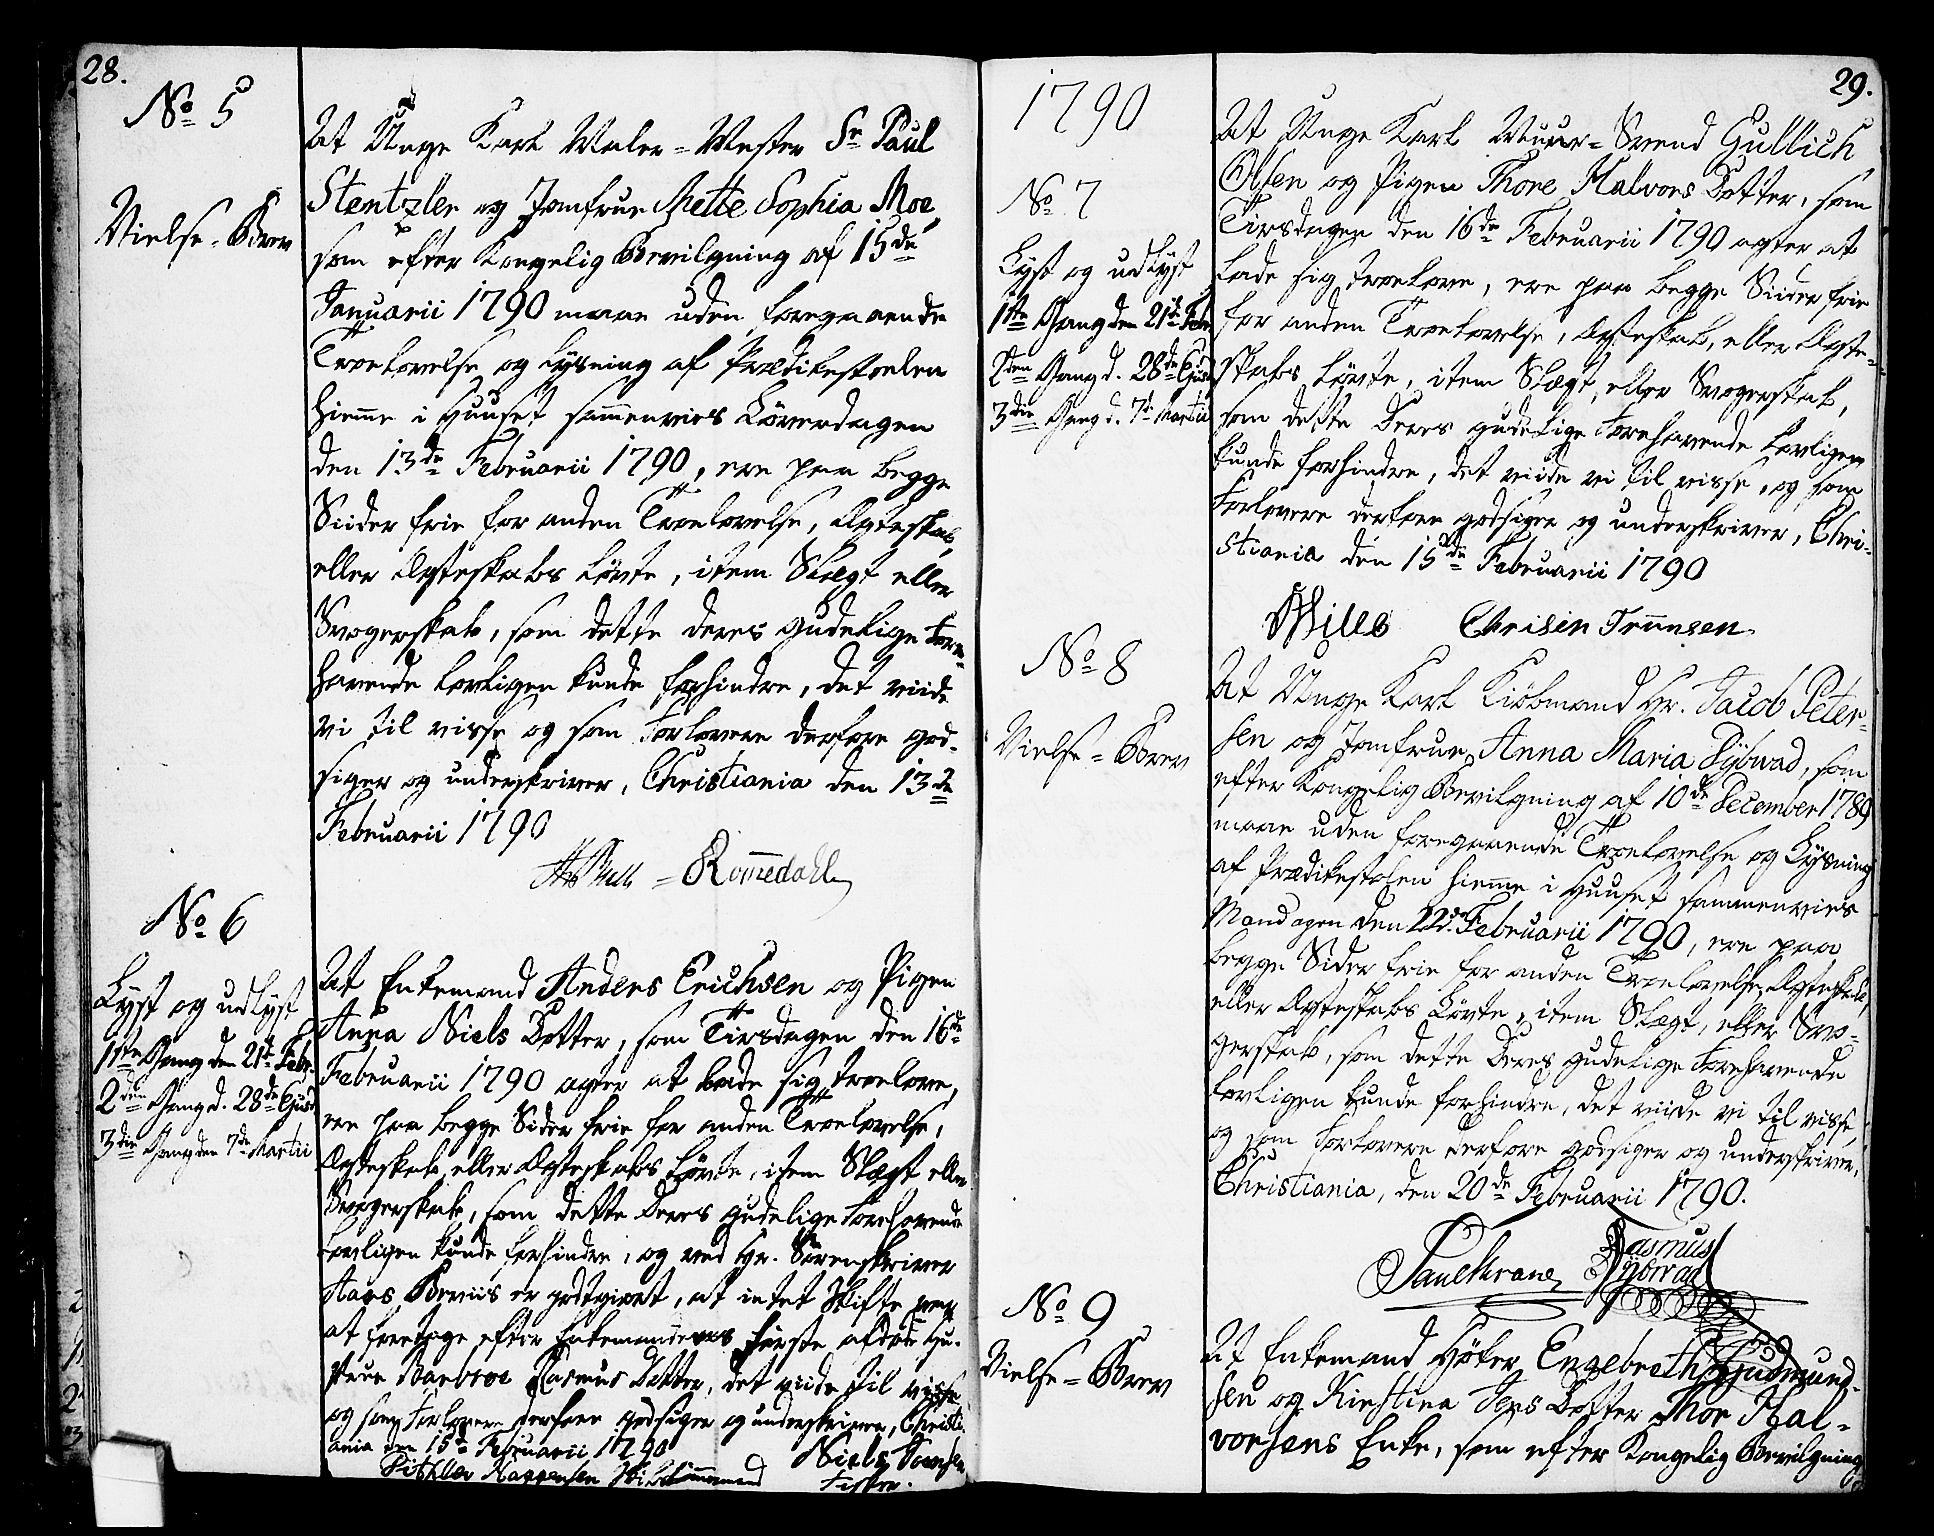 28.
No 5
Vielse-Brev
At Unge Karl Maler-Mester Sr Paul
Stentzler og Jomfrue Mette Sophia Moe,
som efter Kongelig Bevilgning af 15de
Januarii 1790 maae uden foregaaende
Troelovelse og Lysning af Prædikestoelen
hieme i Huuset samenvies Löverdagen
den 13de Februarii 1790, ere paa begge
Siider frie for anden Troelovelse, Ægteskab,
eller Ægteskabs Løvte, item Slægt eller
Svogerskab, som dette deres gudelige Fore-
havende lovligen kunde forhindre, det viide
vi til visse og som Forlovere derfore god-
siger og underskriver, Christiania den 13de
Februarii 1790
Romedahl
No 6
Lyst og udlyst
1ste Gang den 21de Febr.
2den Gang d. 28de Ejusd
3die Gang den 7de Martii
At Enkemand Anders Erichsen og Pigen
Anna Niels Dotter, som Tirsdagen den 16de
Februarii 1790 agter at lade sig troelove,
ere paa begge Sider frie for anden Troelovelse,
Ægteskab, eller Ægteskabs Løvte, item Slægt eller
Svogerskab, som dette deres gudelige Forehavende
lovligen kunde forhindre, og ved Hr. Sorenskriver
Beviis er godtgiort, at intet Skifte var
at foretage efter Enkemandens første afdøde Hu-
strue Barbroe Rasmus Datter, det viide til visse
og som Forlovere derfore godsiger og underskriver, Christi-
ania den 15de Februarii 1790
Niels
Fisker.
1790
29.
No 7
Lyst og udlyst
1ste Gang den 21de Febr
2den Gang d. 28de Ejusd
3die Gang d. 7de Martii
At Unge Karl Muur-Svend Gullich
Olsen og Pigen Thore Halvors Dotter, som
Tirsdagen den 16de Februarii 1790 agter at
lade sig troelove, ere paa begge Siider frie
for anden Troelovelse, Ægteskab, eller Ægte-
skabs Løvte, item Slægt, eller Svogerskab,
som dette Deres gudelige Forehavende lovligen
kunde forhindre, det viide vi til visse, og som
Forlovere derfore godsiger og underskriver, Chri-
stiania den 15de Februarii 1790
Hille Chrisen Truunsen
No 8
Vielse-Brev
At Unge Karl Kiöbmand Hr. Jacob Peter-
sen og Jomfrue Anna Maria Dybwad, som
efter Kongelig Bevilgning af 10de December 1789
maae uden foregaaende Troelovelse og Lysning
af Prædikestolen hieme i Huuset sammenvies
Mandagen den 22de Februarii 1790, ere paa
begge Sider frie for anden Troelovelse, Ægteskab,
eller Ægteskabs Løvte, item Slægt, eller Svo-
gerskab, som dette Deres gudelige Forehavende
lovligen kunde forhindre, det viide vi til visse,
og som Forlovere derfore godsiger og underskriver,
Christiania, den 20de Februarii 1790.
Paul Thrane Rasmus
Dybwad
No 9
Vielse-Brev
At Enkemand Høker Engebreth Gudmund-
sen og Kirstina Jens Dotter Thor Hal-
vorsens Enke, som efter Kongelig Bevilgning